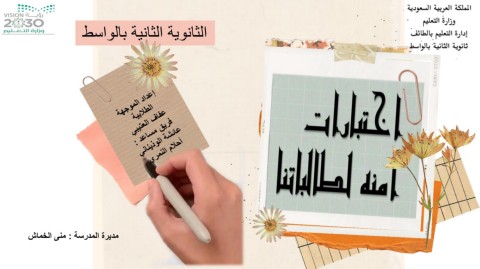 المملكة العربية السعودية
وزارة التعليم
إدارة التعليم بالطائف
ثانوية الثانية بالواسط
VISION رؤية
2030
وزارة التعليم
الثانوية الثانية بالواسط
إعداد الموجهة
الطلابية
عفاف العتيبي
فريق مساعد :
عائشة الوذيناني
أحلام النمري
إختبارات
امنه لطالباتنا
مديرة المدرسة : منى الخماش